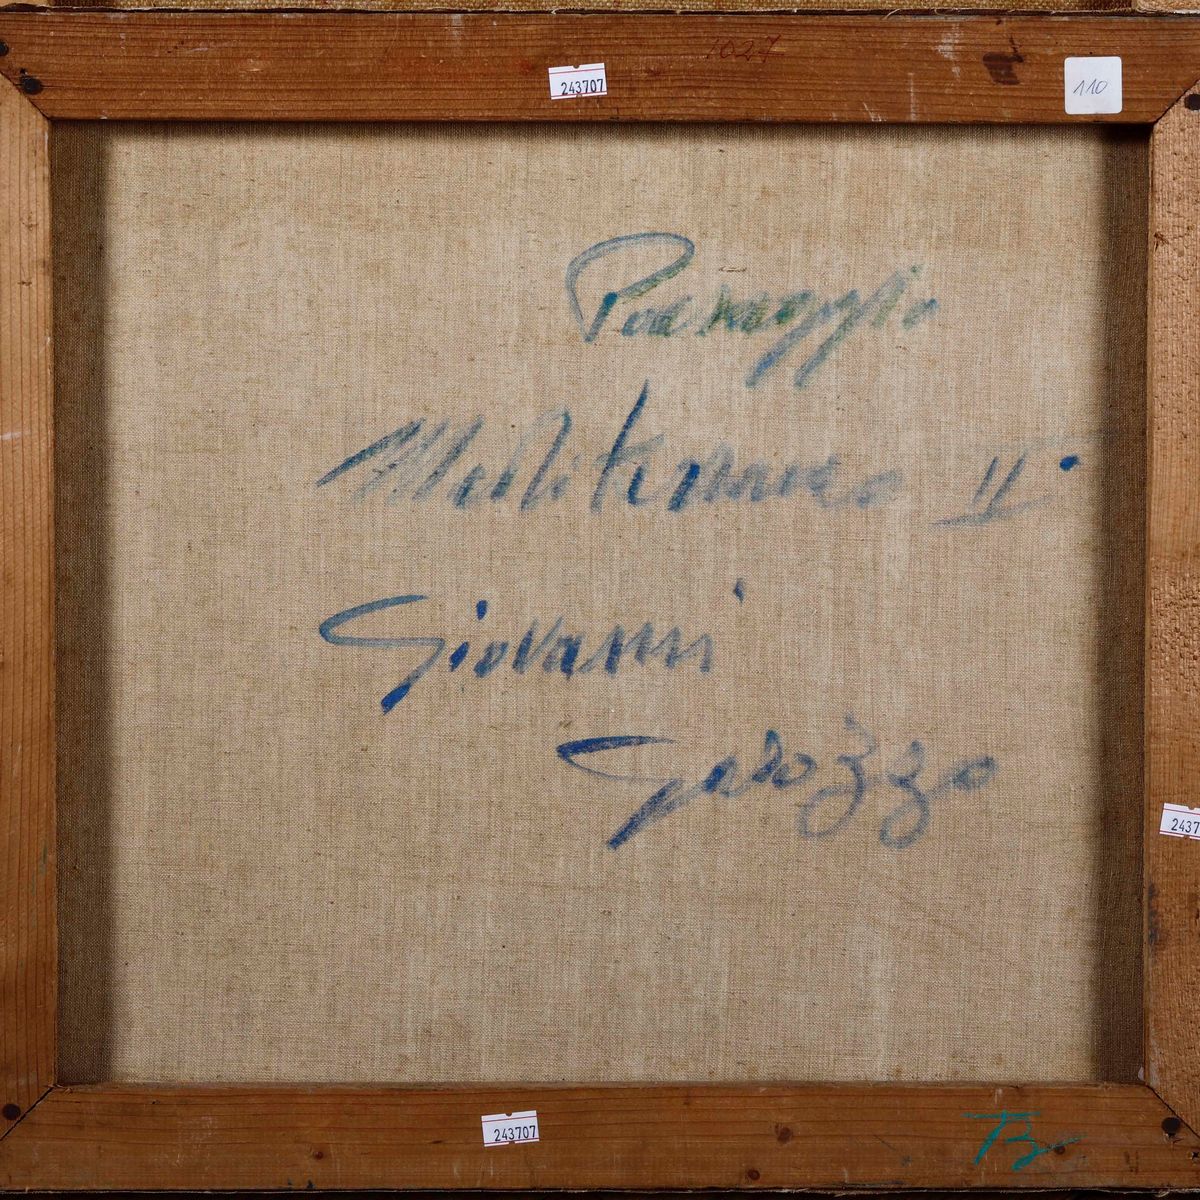 1027
243707
110
Paesaggio
Mediterraneo II°
Giovanni
Garozzo
2437
243707